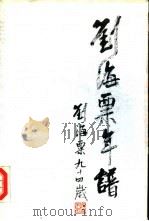 劉海粟年譜
劉海粟九十四歲